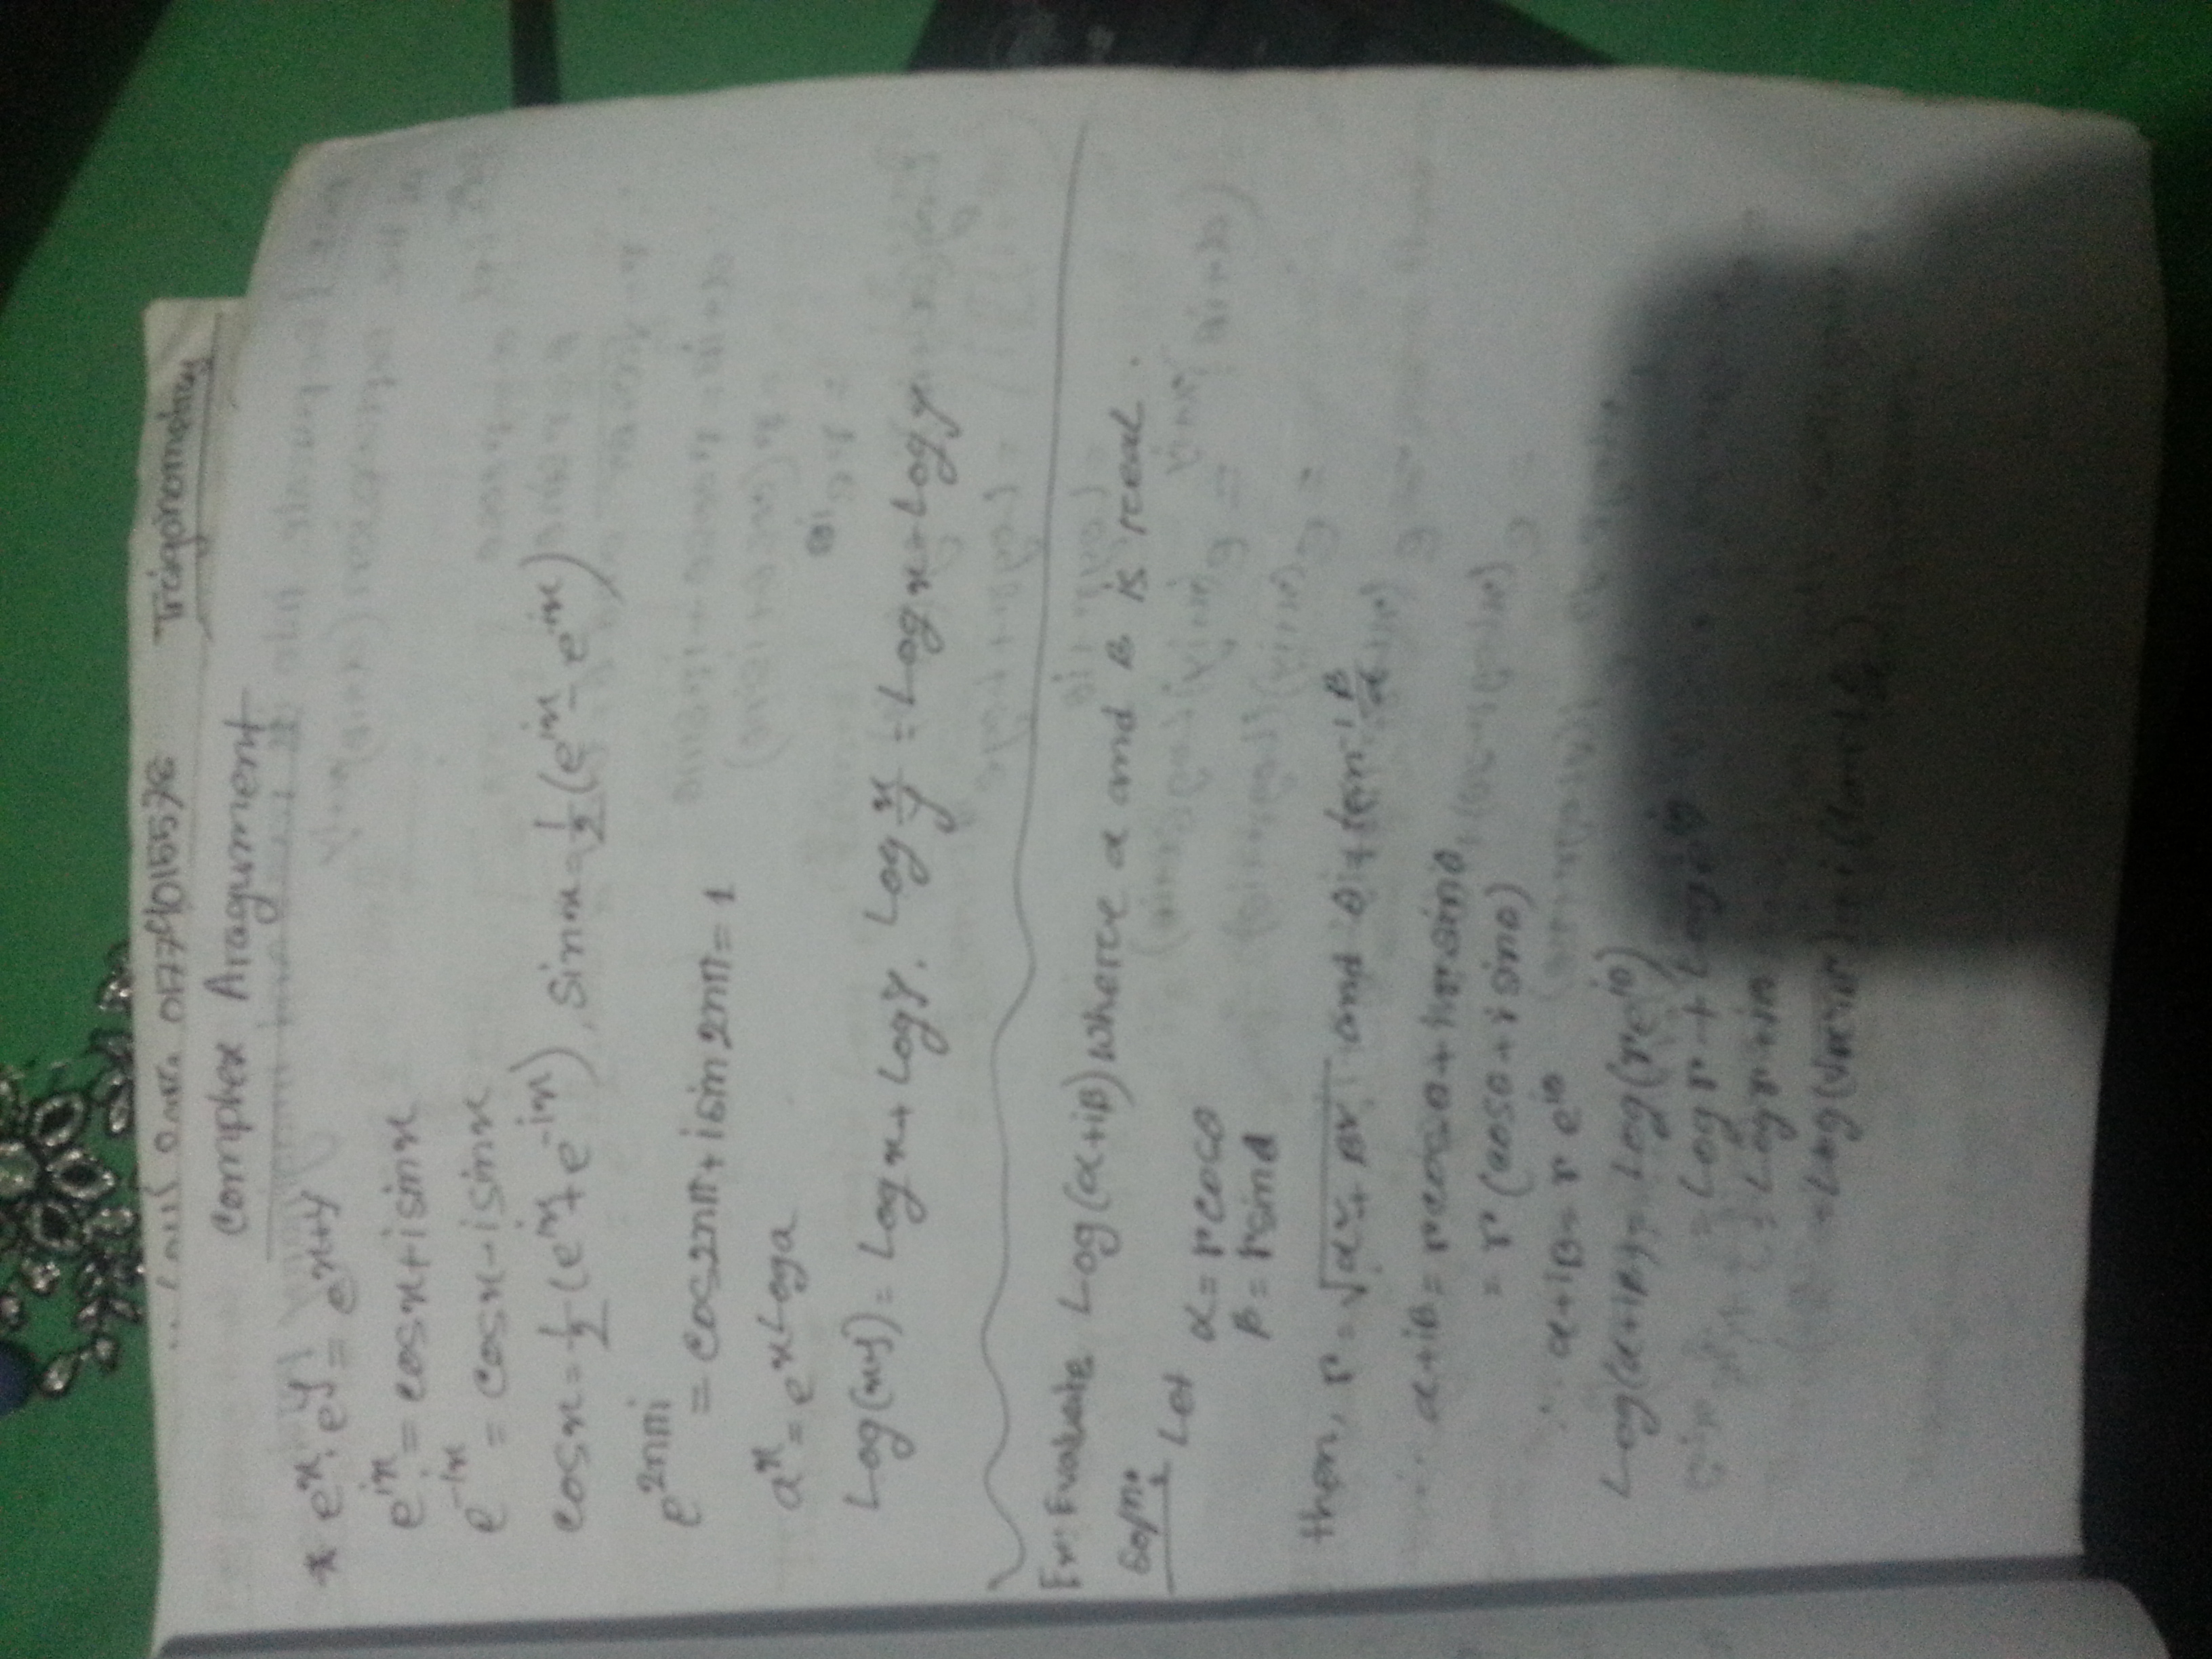 01774015578 Trcigonometry
Complex Aragument
* eˣ·eʸ = eˣ⁺ʸ
e^{ix} = cosx+isinx
e^{-ix} = cosx-isinx
cosx = 1/2 (e^{ix}+e^{-ix}), sinx = 1/2 (e^{ix}-e^{-ix})
e^{2nπi} = cos2nπ+isin2nπ = 1
aˣ = e^{xLoga}
Log(xy) = Logx+Logy. Log x/y = Logx-Logy
Ex: Evaluate Log(α+iβ) wherce α and β is rceal.
Soln:
Let α = rcosθ
β = rsinθ
then, r = √(α²+β²) and θ = tan⁻¹ β/α
α+iβ = rcosθ+irsinθ
= r(cosθ+isinθ)
∴ α+iβ = re^{iθ}
Log(α+iβ) = Log(re^{iθ})
= Logr + Loge^{iθ}
= Logr+iθ
= Log(√(α²+β²)) + i(tan⁻¹ β/α)